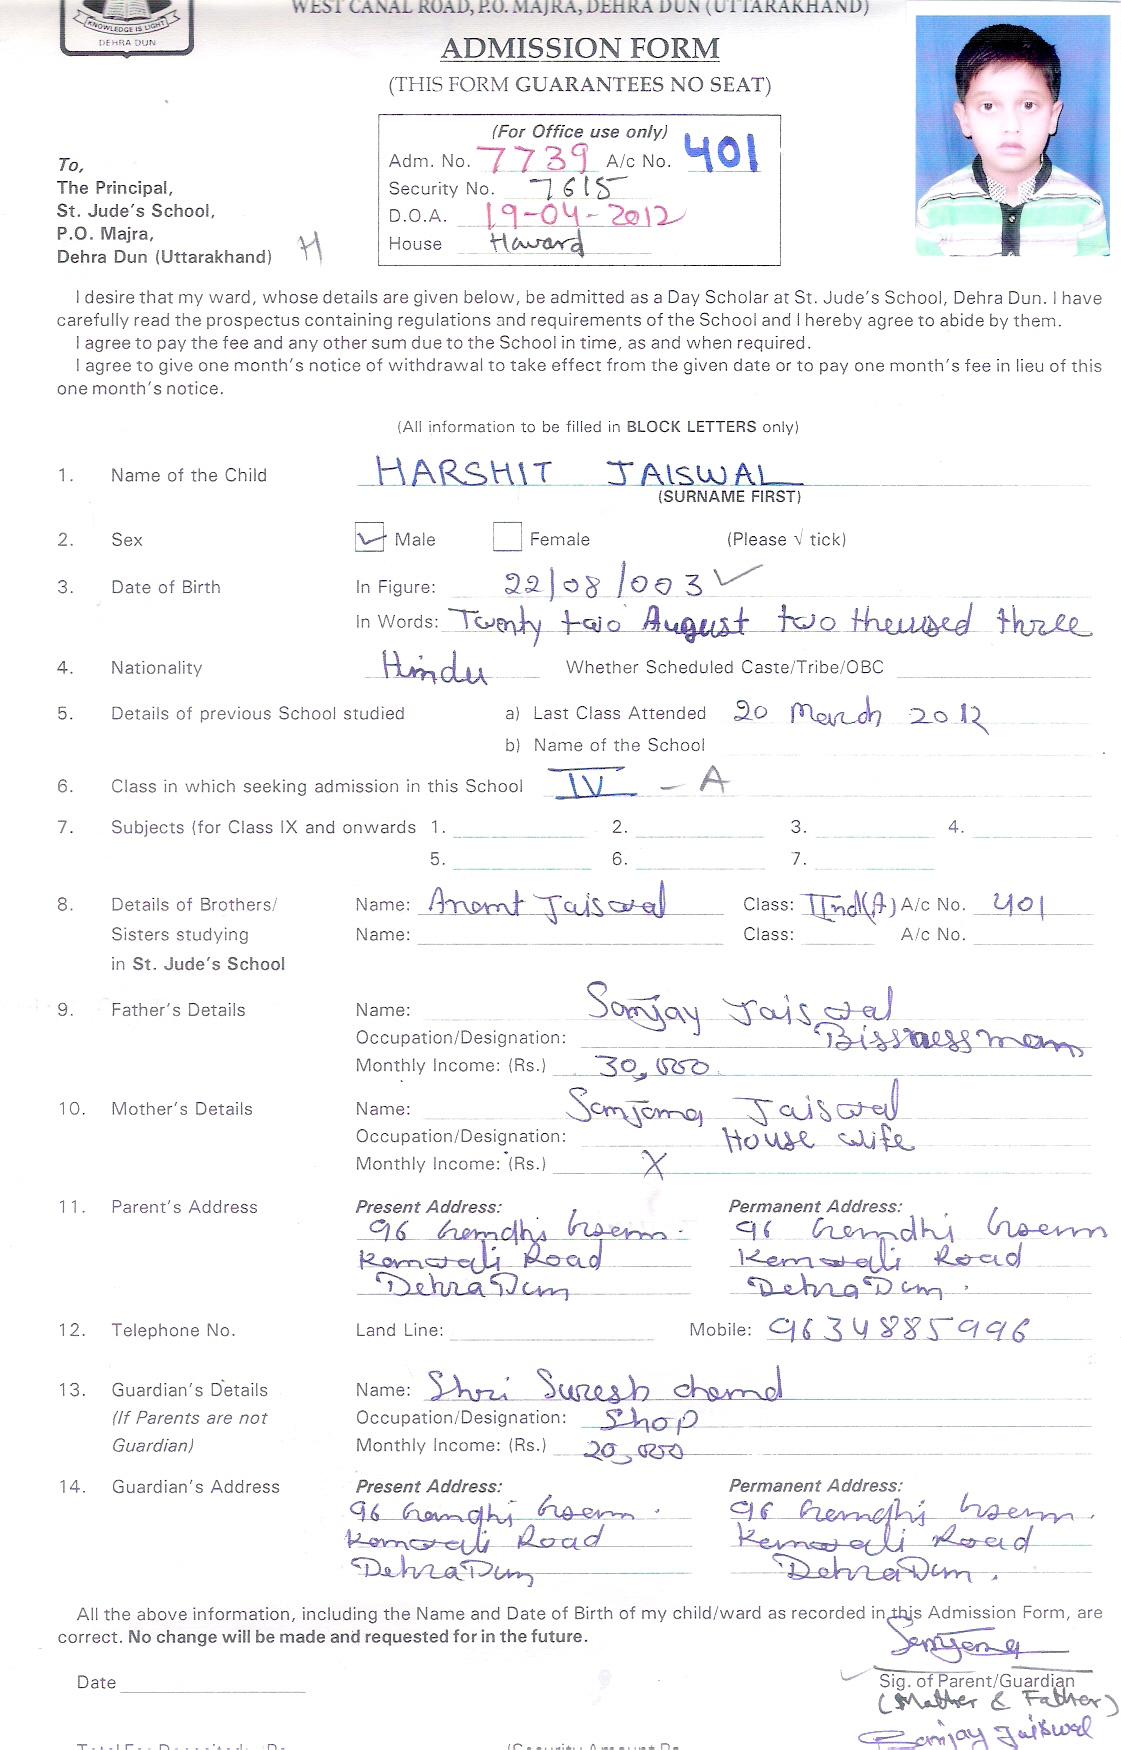 WEST CANAL ROAD, P.O. MAJRA, DEHRA DUN (UTTARAKHAND)
KNOWLEDGE IS LIGHT
DEHRA DUN
ADMISSION FORM
(THIS FORM GUARANTEES NO SEAT)
(For Office use only)
Adm. No. 7739 A/c No. 401
Security No. 7615
D.O.A. 19-04-2012
House Haward
To,
The Principal,
St. Jude's School,
P.O. Majra,
Dehra Dun (Uttarakhand) H
I desire that my ward, whose details are given below, be admitted as a Day Scholar at St. Jude's School, Dehra Dun. I have
carefully read the prospectus containing regulations and requirements of the School and I hereby agree to abide by them.
I agree to pay the fee and any other sum due to the School in time, as and when required.
I agree to give one month's notice of withdrawal to take effect from the given date or to pay one month's fee in lieu of this
one month's notice.
(All information to be filled in BLOCK LETTERS only)
1. Name of the Child HARSHIT JAISWAL
(SURNAME FIRST)
2. Sex Male Female (Please √ tick)
3. Date of Birth In Figure: 22/08/003
In Words: Twenty two August two theused three
4. Nationality Hindu Whether Scheduled Caste/Tribe/OBC
5. Details of previous School studied a) Last Class Attended 20 March 2012
b) Name of the School
6. Class in which seeking admission in this School IV - A
7. Subjects (for Class IX and onwards 1. 2. 3. 4.
5. 6. 7.
8. Details of Brothers/ Name: Anant Jaiswal Class: IInd(A) A/c No. 401
Sisters studying Name: Class: A/c No.
in St. Jude's School
9. Father's Details Name: Sanjay Jaiswal
Occupation/Designation: Bissnessman
Monthly Income: (Rs.) 30,000
10. Mother's Details Name: Sanjana Jaiswal
Occupation/Designation: House wife
Monthly Income: (Rs.) X
11. Parent's Address Present Address: Permanent Address:
96 Gandhi Gram 96 Gandhi Gram
Kanwali Road Kanwali Road
Dehra Dun Dehra Dun.
12. Telephone No. Land Line: Mobile: 9634885996
13. Guardian's Details Name: Shri Suresh chand
(If Parents are not Occupation/Designation: Shop
Guardian) Monthly Income: (Rs.) 20,000
14. Guardian's Address Present Address: Permanent Address:
96 Gandhi Gram. 96 Gandhi Gram.
Kanwali Road Kanwali Road
Dehra Dun Dehra Dun.
All the above information, including the Name and Date of Birth of my child/ward as recorded in this Admission Form, are
correct. No change will be made and requested for in the future.
Sanjana
Date Sig. of Parent/Guardian
(Mother & Father)
Sanjay Jaiswal